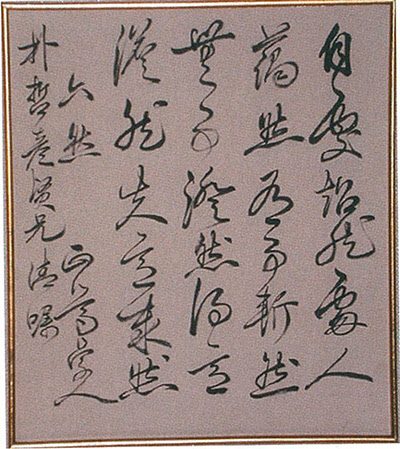 自處超然處人
藹然有事斬然
無事澄然得意
然失意泰然
六然
朴哲彥賢兄清囑